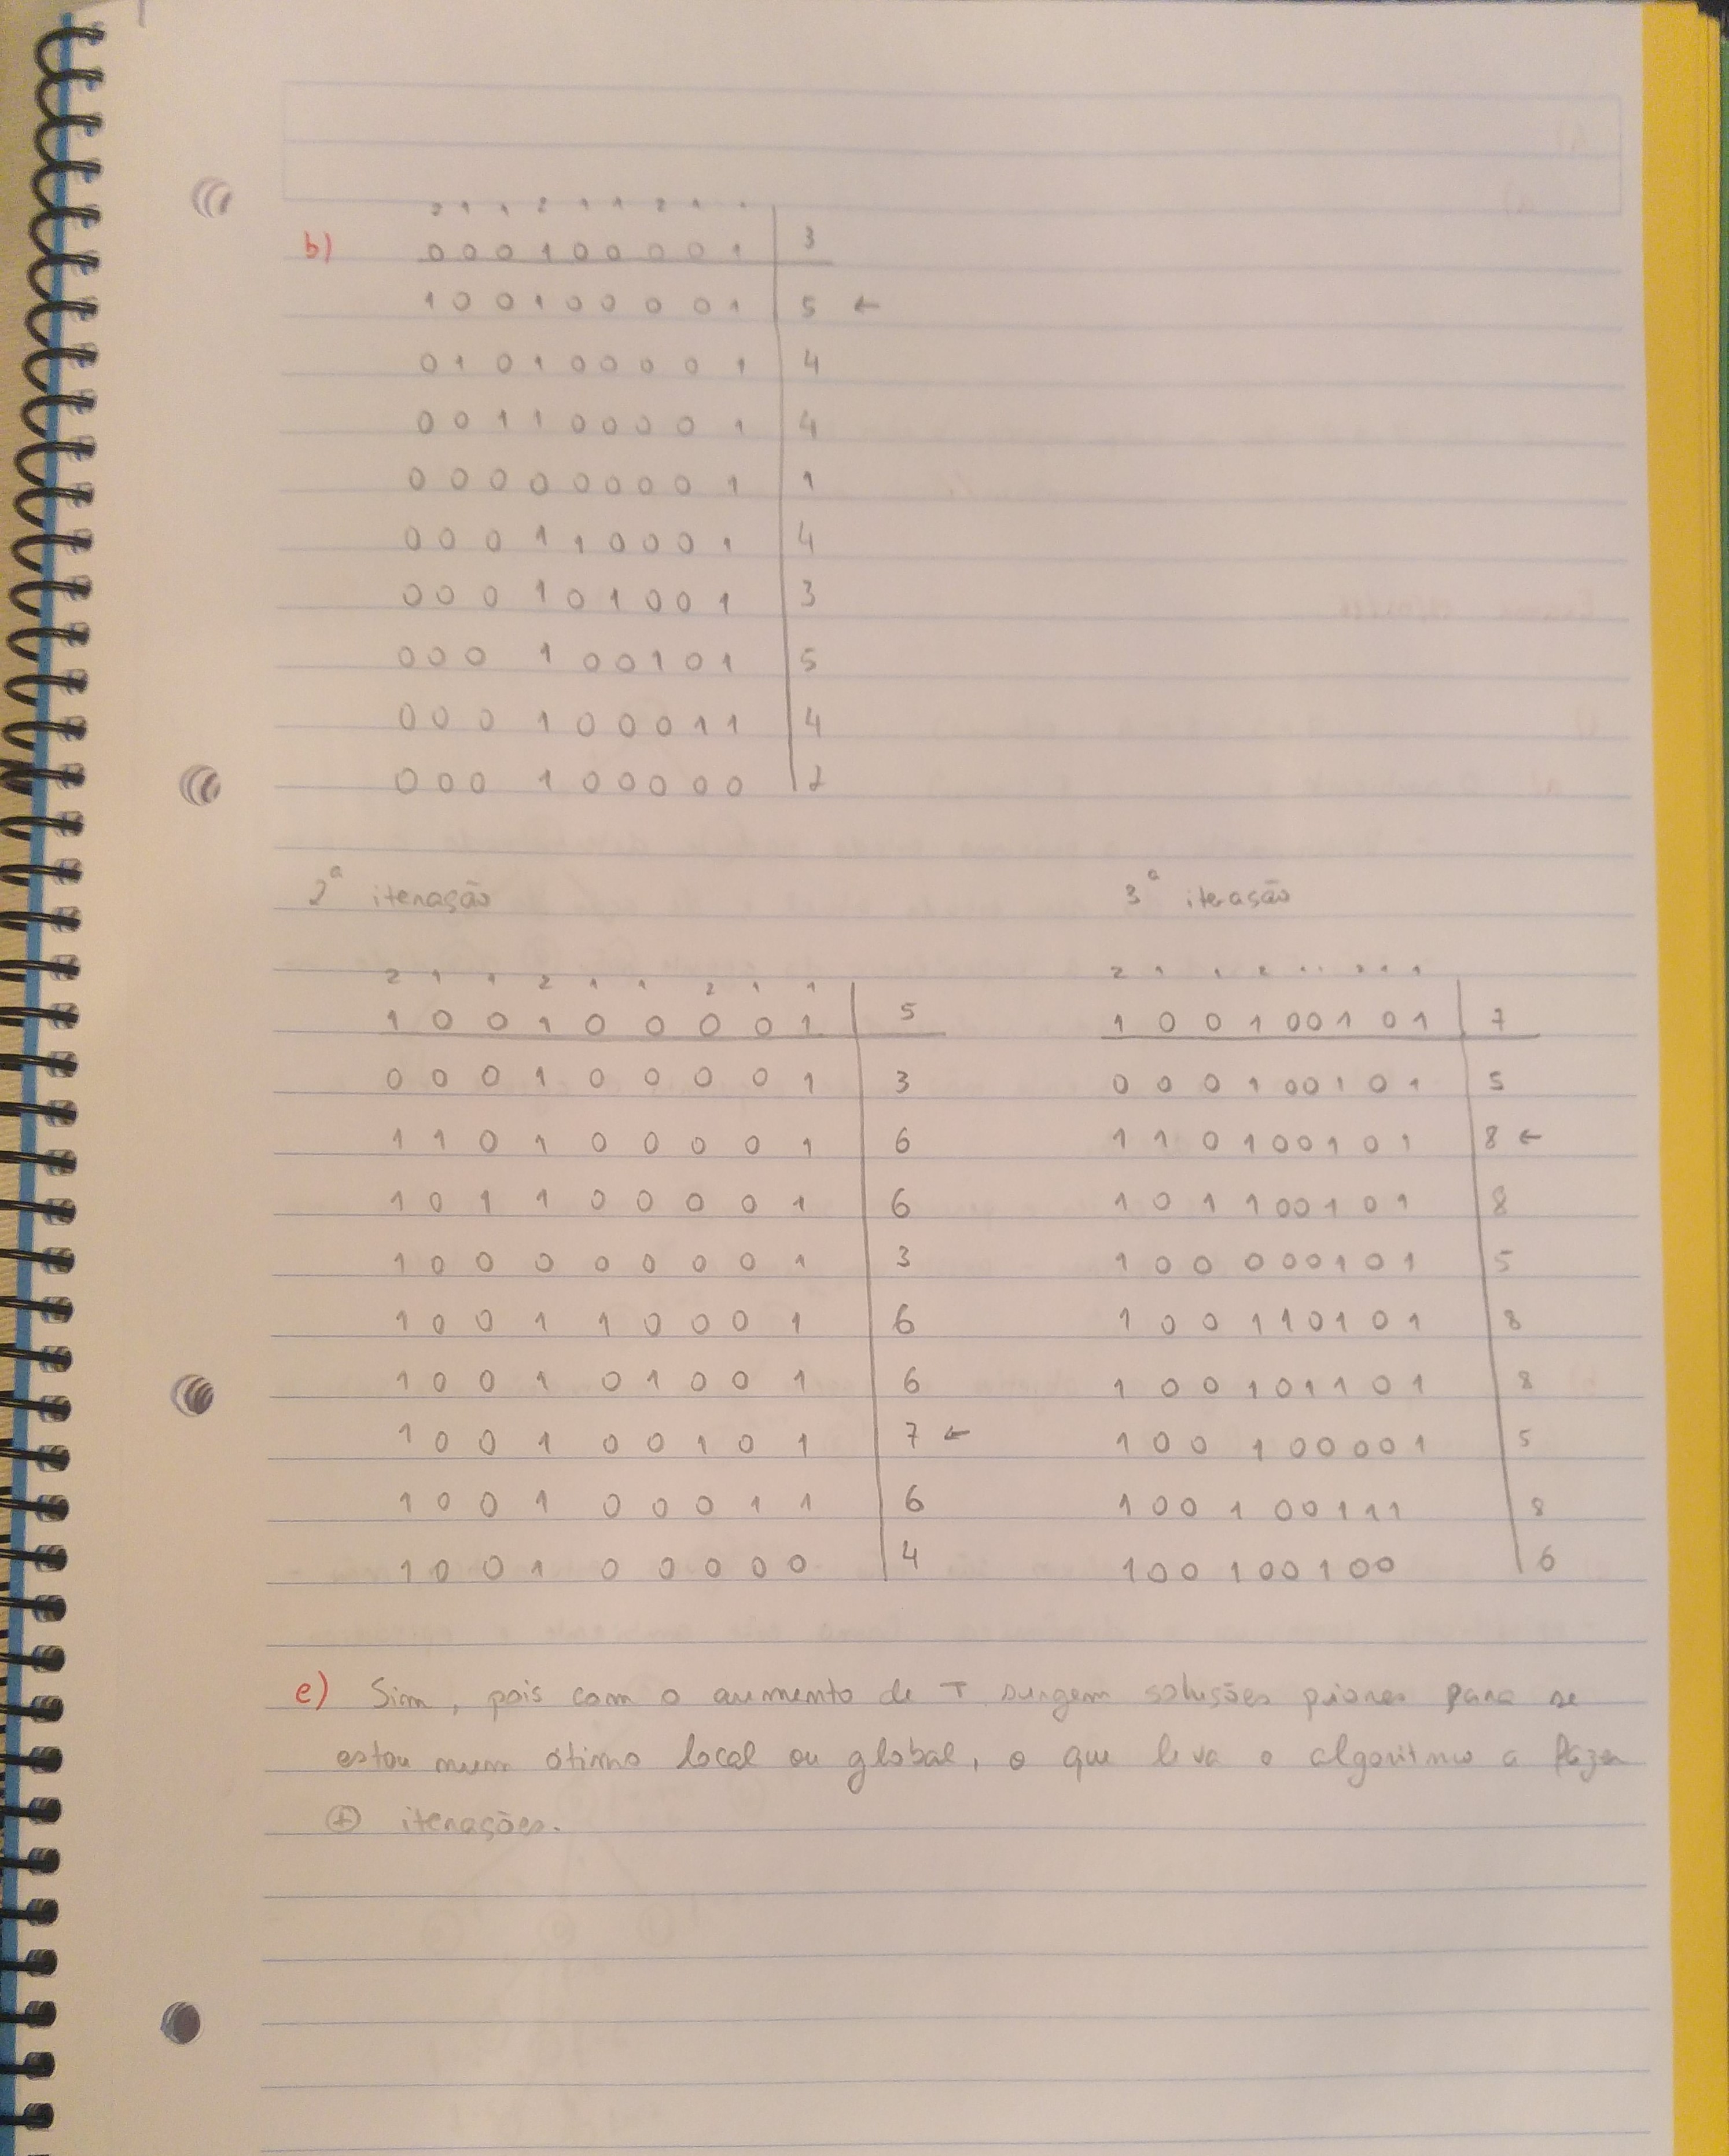 2 1 1 2 1 1 2 1 1
b) 0 0 0 1 0 0 0 0 1 3
1 0 0 1 0 0 0 0 1 5 ←
0 1 0 1 0 0 0 0 1 4
0 0 1 1 0 0 0 0 1 4
0 0 0 0 0 0 0 0 1 1
0 0 0 1 1 0 0 0 1 4
0 0 0 1 0 1 0 0 1 3
0 0 0 1 0 0 1 0 1 5
0 0 0 1 0 0 0 1 1 4
0 0 0 1 0 0 0 0 0 2
2ª iteração
2 1 1 2 1 1 2 1 1
1 0 0 1 0 0 0 0 1 5
0 0 0 1 0 0 0 0 1 3
1 1 0 1 0 0 0 0 1 6
1 0 1 1 0 0 0 0 1 6
1 0 0 0 0 0 0 0 1 3
1 0 0 1 1 0 0 0 1 6
1 0 0 1 0 1 0 0 1 6
1 0 0 1 0 0 1 0 1 7 ←
1 0 0 1 0 0 0 1 1 6
1 0 0 1 0 0 0 0 0 4
3ª iteração
2 1 1 2 1 1 2 1 1
1 0 0 1 0 0 1 0 1 7
0 0 0 1 0 0 1 0 1 5
1 1 0 1 0 0 1 0 1 8 ←
1 0 1 1 0 0 1 0 1 8
1 0 0 0 0 0 1 0 1 5
1 0 0 1 1 0 1 0 1 8
1 0 0 1 0 1 1 0 1 8
1 0 0 1 0 0 0 0 1 5
1 0 0 1 0 0 1 1 1 8
1 0 0 1 0 0 1 0 0 6
e) Sim, pois com o aumento de T surgem soluções piores para se
estou num ótimo local ou global, o que leva o algoritmo a fazer
⊕ iterações.